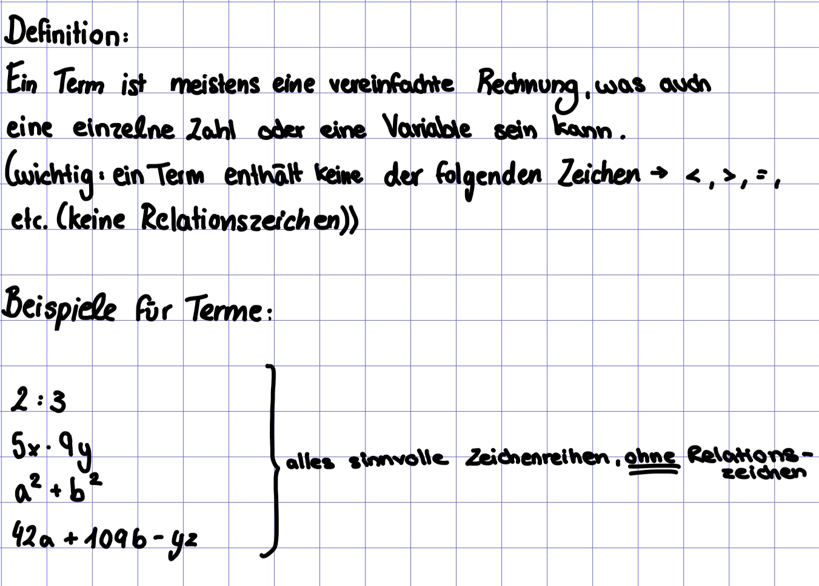 Definition:
Ein Term ist meistens eine vereinfachte Rechnung, was auch
eine einzelne Zahl oder eine Variable sein kann.
(wichtig: ein Term enthält keine der folgenden Zeichen → <, >, =,
etc. (keine Relationszeichen))
Beispiele für Terme:
2 : 3
5x · 9y
a² + b²
42a + 109b - yz
alles sinnvolle Zeichenreihen, ohne Relations-
zeichen